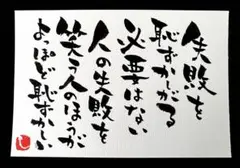 失敗を
恥ずかしがる
必要はない
人の失敗を
笑う人のほうが
よっぽど恥ずかしい